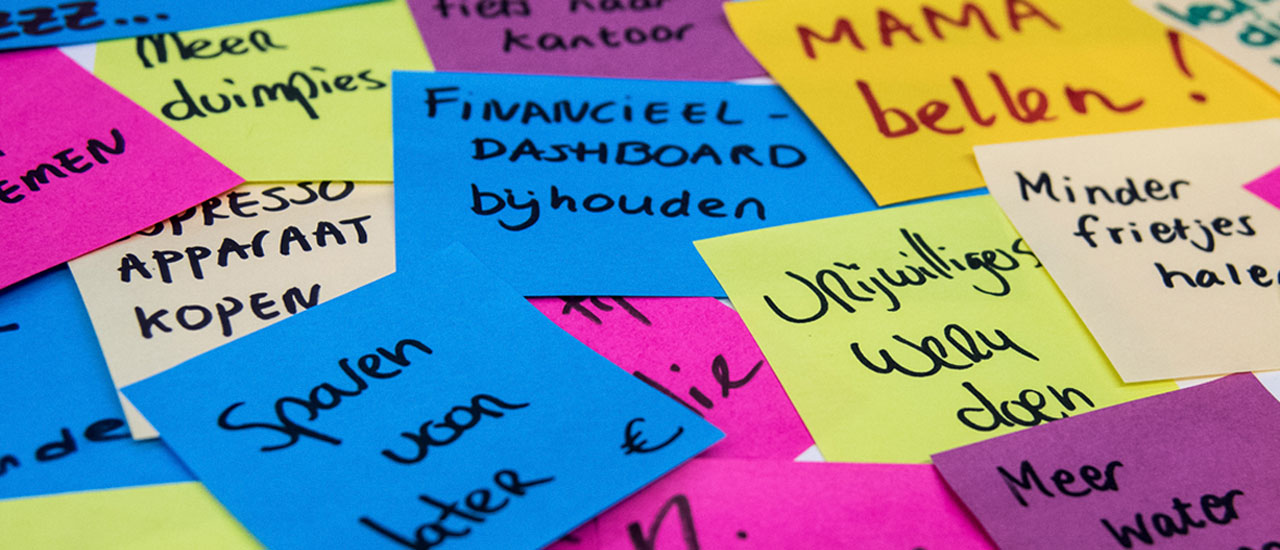 zzz...
Meer
duimpies
fiets naar
kantoor
MAMA
bellen!
EMEN
FINANCIEEL-
DASHBOARD
bijhouden
Minder
frietjes
hale
PRESSO
APPARAAT
KOPEN
Vrijwilligers
werk
doen
Sparen
voor
later €
lie
nde
n.
Meer
water